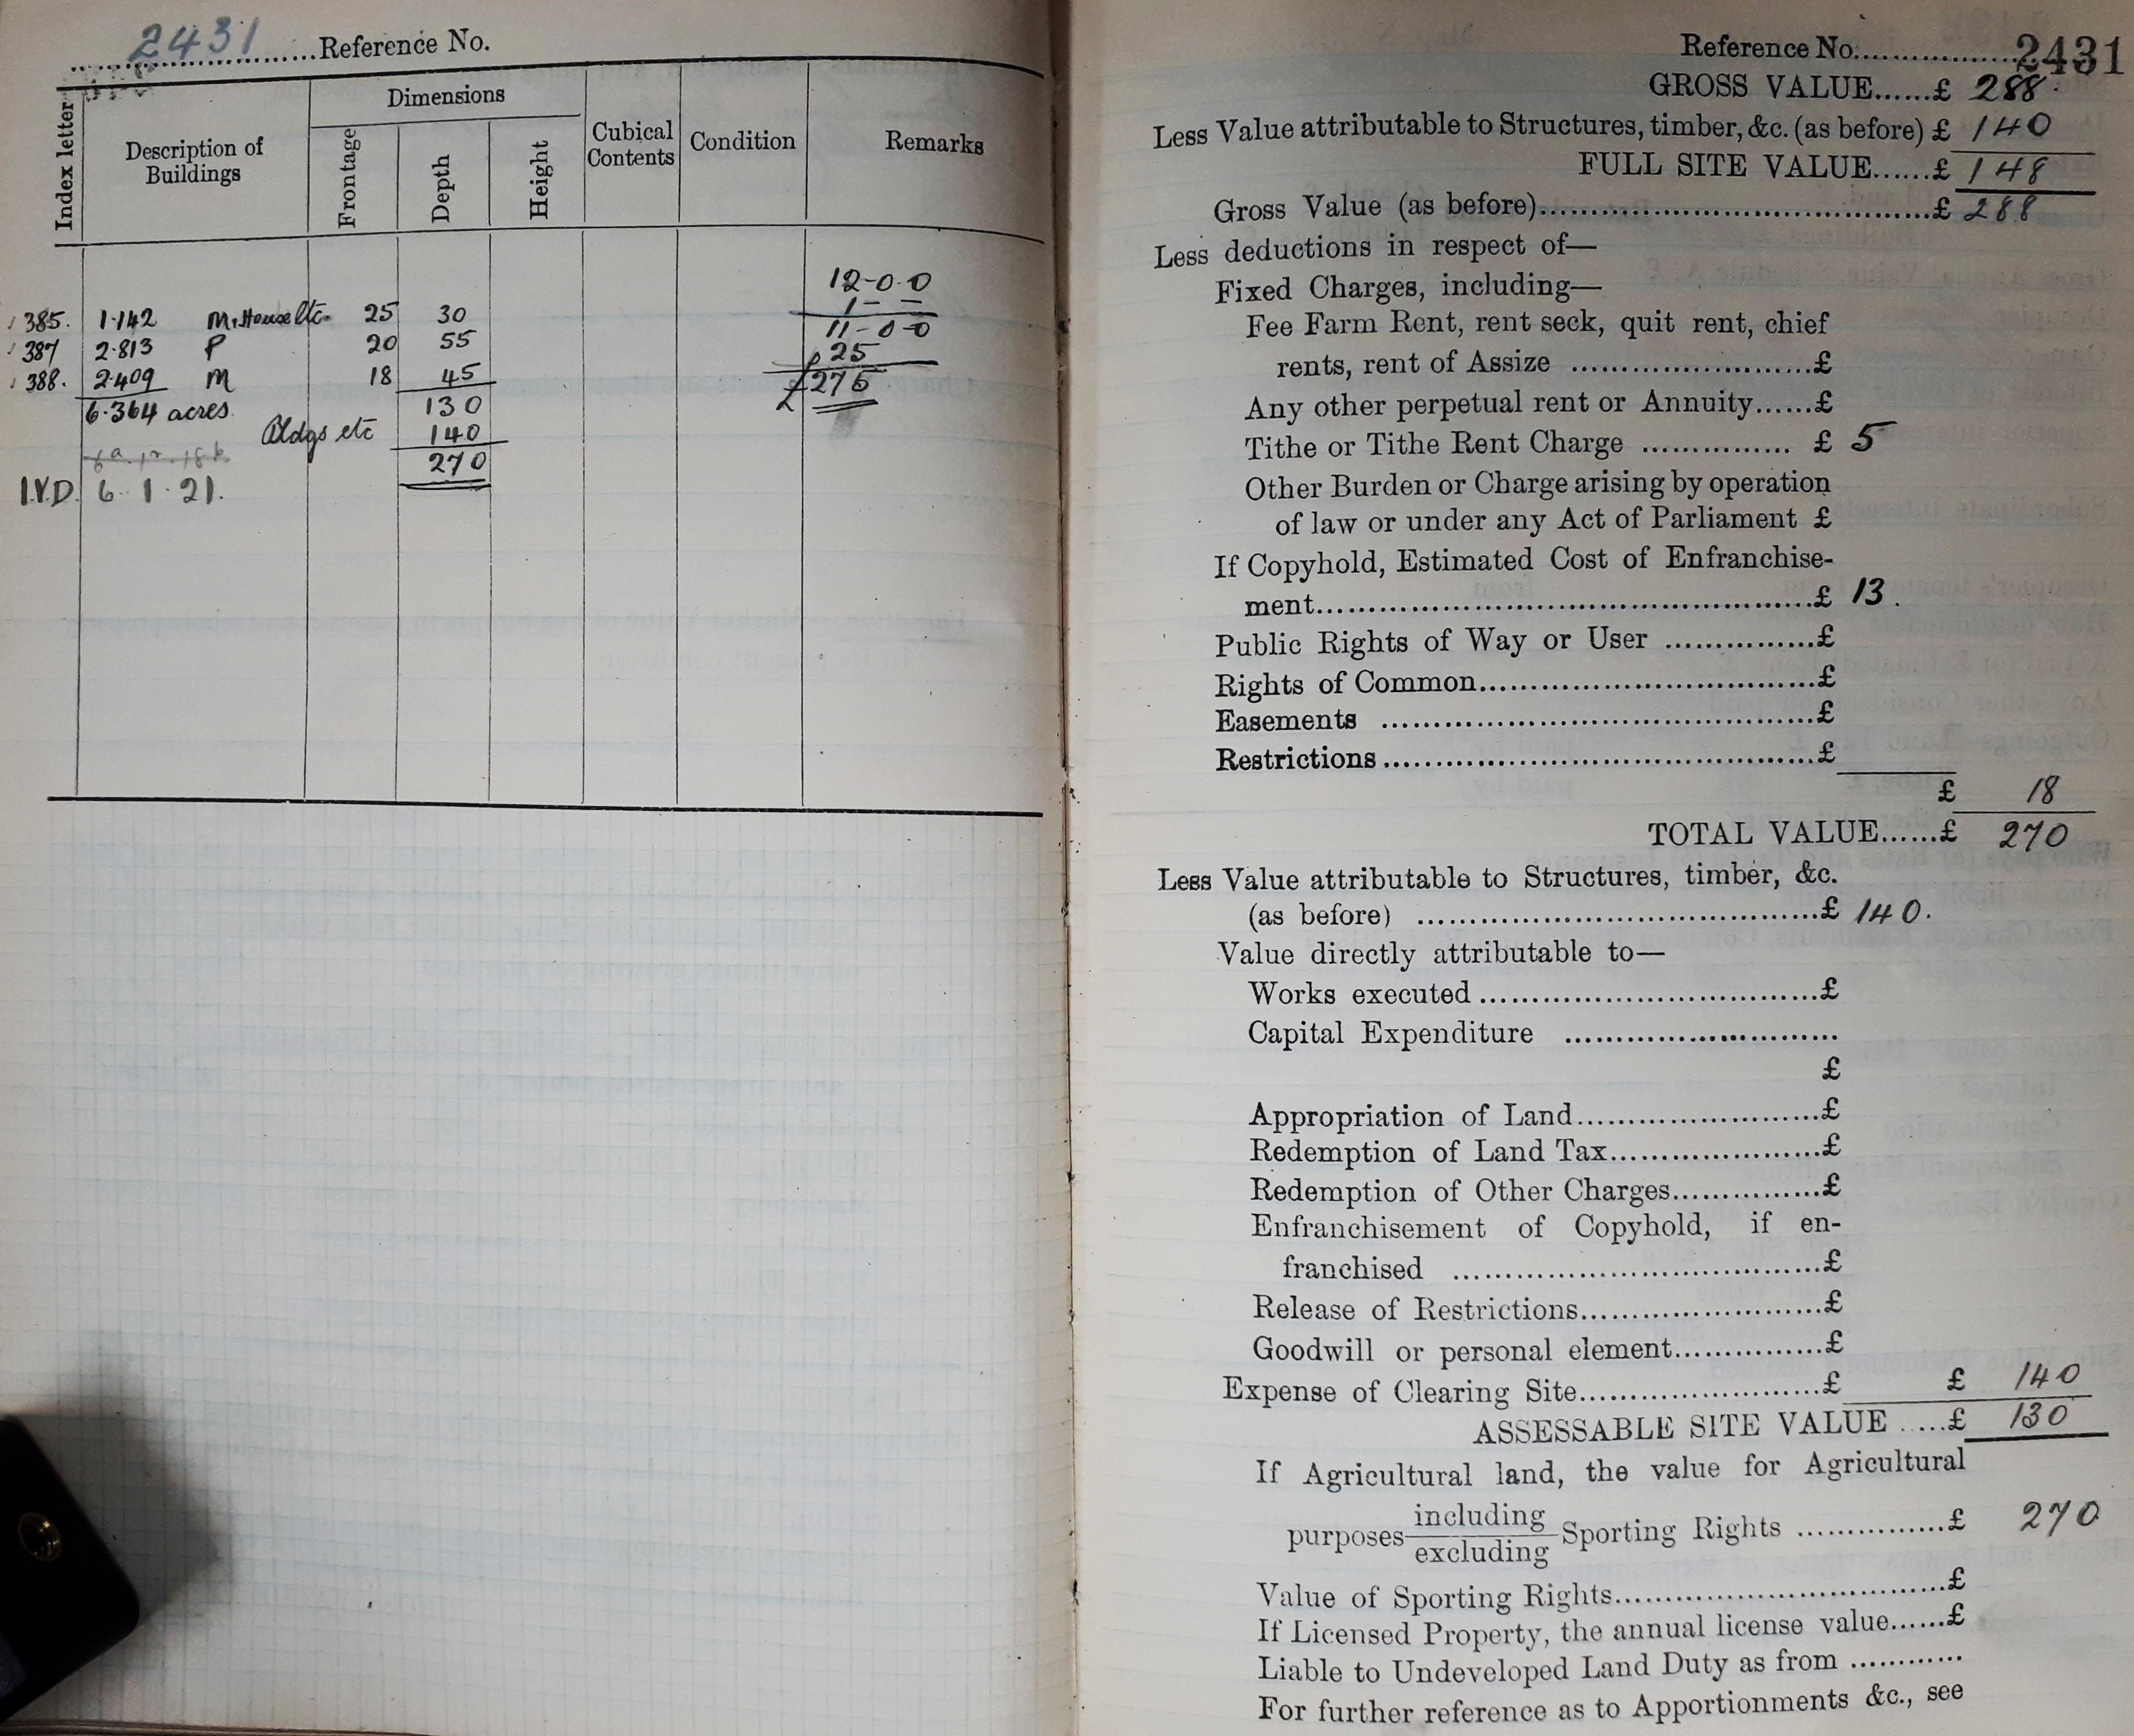 2431 Reference No.
Index letter
Description of Buildings
Dimensions
Frontage
Depth
Height
Cubical Contents
Condition
Remarks
12-0-0
1 - -
11-0-0
25
£275
385. 1.142 M, House etc. 25 30
387 2.813 P 20 55
388. 2.409 M 18 45
6.364 acres. 130
Bldgs etc 140
270
I.V.D. 6. 1. 21.
Reference No. 2431
GROSS VALUE......£ 288.
Less Value attributable to Structures, timber, &c. (as before) £ 140
FULL SITE VALUE......£ 148
Gross Value (as before)......£ 288
Less deductions in respect of—
Fixed Charges, including—
Fee Farm Rent, rent seck, quit rent, chief
rents, rent of Assize ......£
Any other perpetual rent or Annuity......£
Tithe or Tithe Rent Charge ...... £ 5
Other Burden or Charge arising by operation
of law or under any Act of Parliament £
If Copyhold, Estimated Cost of Enfranchise-
ment......£ 13.
Public Rights of Way or User ......£
Rights of Common......£
Easements ......£
Restrictions......£
£ 18
TOTAL VALUE......£ 270
Less Value attributable to Structures, timber, &c.
(as before) ......£ 140.
Value directly attributable to—
Works executed......£
Capital Expenditure ......
£
Appropriation of Land......£
Redemption of Land Tax......£
Redemption of Other Charges......£
Enfranchisement of Copyhold, if en-
franchised ......£
Release of Restrictions......£
Goodwill or personal element......£
Expense of Clearing Site......£ £ 140
ASSESSABLE SITE VALUE .....£ 130
If Agricultural land, the value for Agricultural
purposes including
excluding Sporting Rights ......£ 270
Value of Sporting Rights......£
If Licensed Property, the annual license value......£
Liable to Undeveloped Land Duty as from ......
For further reference as to Apportionments &c., see